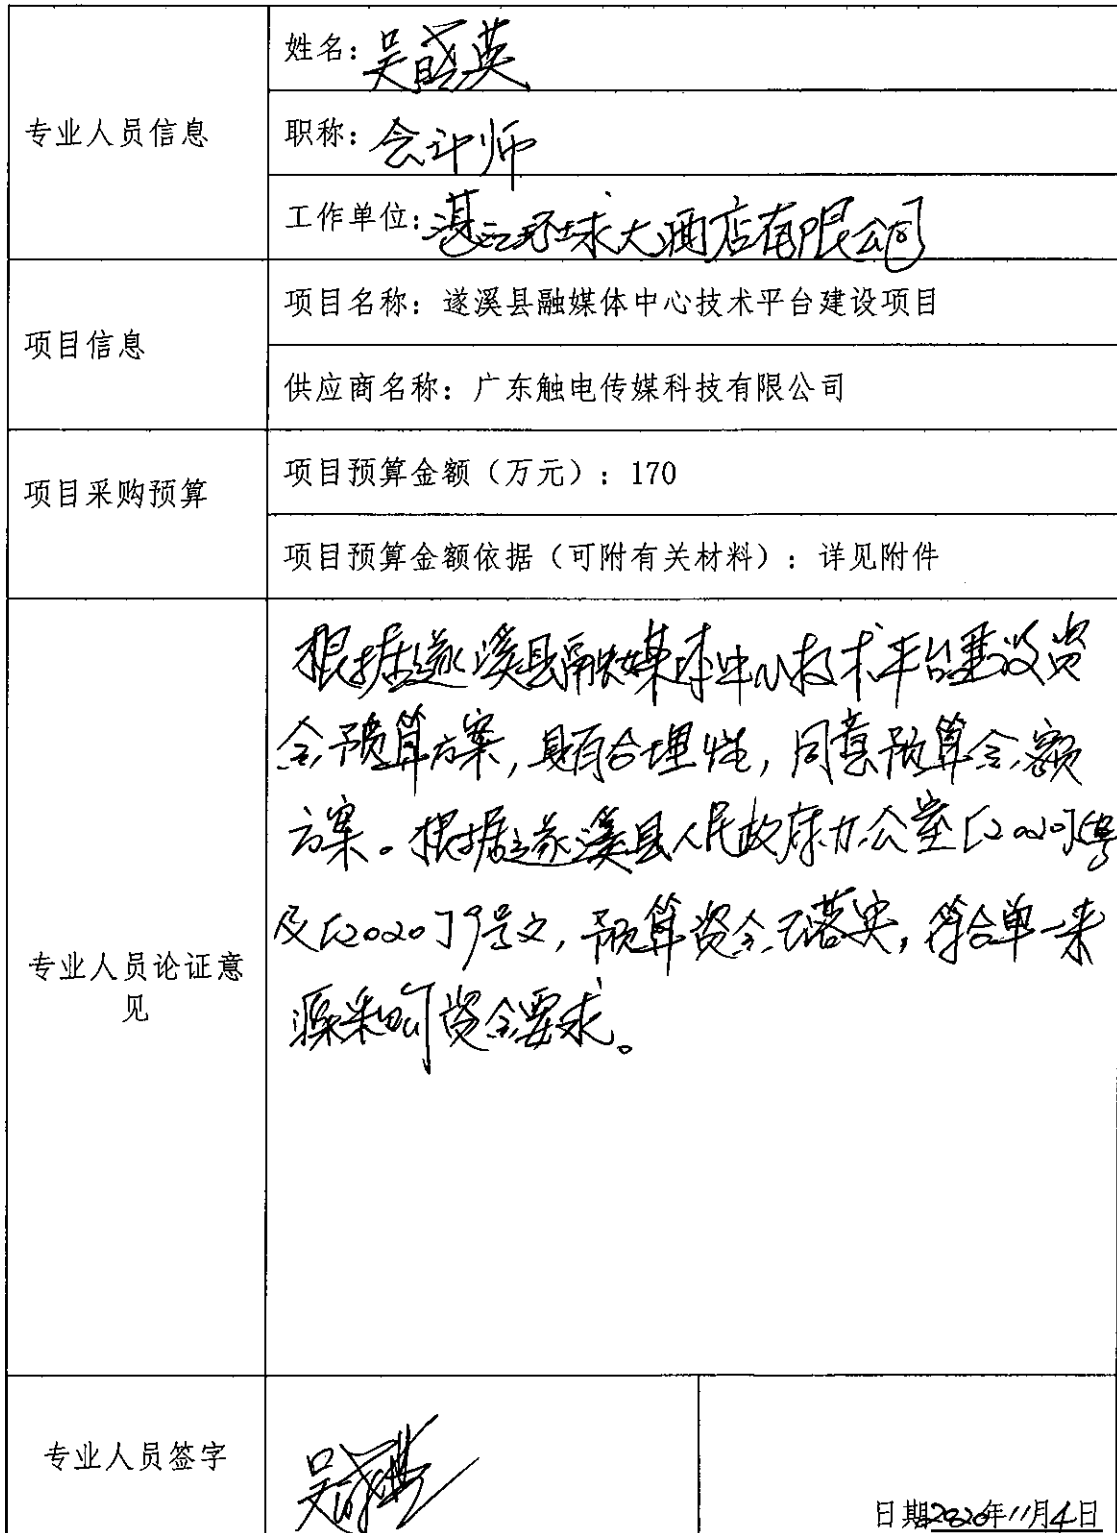 专业人员信息
姓名：吴盛英
职称：会计师
工作单位：湛江环球大酒店有限公司
项目信息
项目名称：遂溪县融媒体中心技术平台建设项目
供应商名称：广东触电传媒科技有限公司
项目采购预算
项目预算金额（万元）：170
项目预算金额依据（可附有关材料）：详见附件
专业人员论证意
见
根据遂溪县融媒体中心技术平台建设资
金预算方案，具有合理性，同意预算金额
方案。根据遂溪县人民政府办公室[2020]
及[2020]9号文，预算资金已落实，符合单一来
源采购资金要求。
专业人员签字
吴盛英
日期2020年11月4日